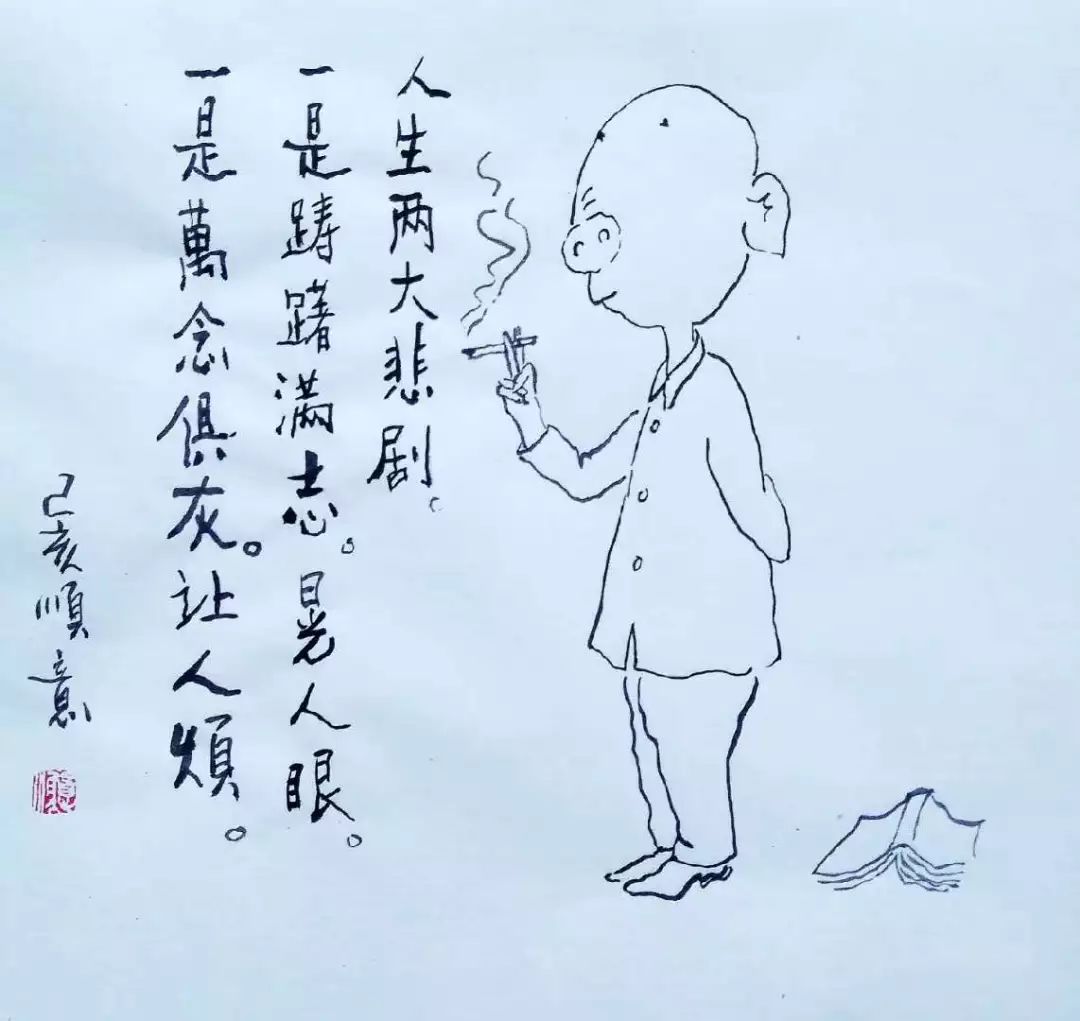 人生两大悲剧。
一是踌躇满志。晃人眼。
一是萬念俱灰。让人煩。
己亥順意